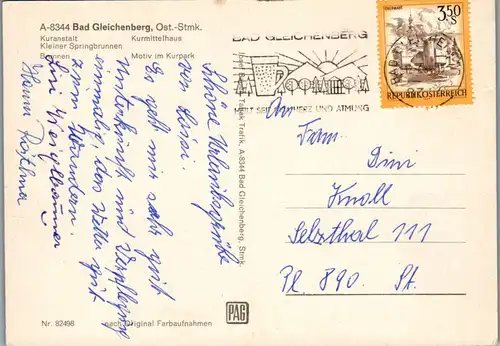 A-8344 Bad Gleichenberg, Ost.-Stmk.
Kuranstalt Kurmittelhaus
Kleiner Springbrunnen
Brunnen Motiv im Kurpark
BAD GLEICHENBERG
HEILT SEIT HERZ UND ATMUNG
3.50
S
REPUBLIK ÖSTERREICH
Tabak Trafik, A-8344 Bad Gleichenberg, Stmk.
Schöne Urlaubsgrüße
von
Es geht mir sehr gut
Unterkunft und Verpflegung
einmalig, das Wetter gut
zum Wandern.
An
Fam.
Knoll
Selzthal 111
Pl. 890. St.
PAG
Nr. 82498 nach Original Farbaufnahmen